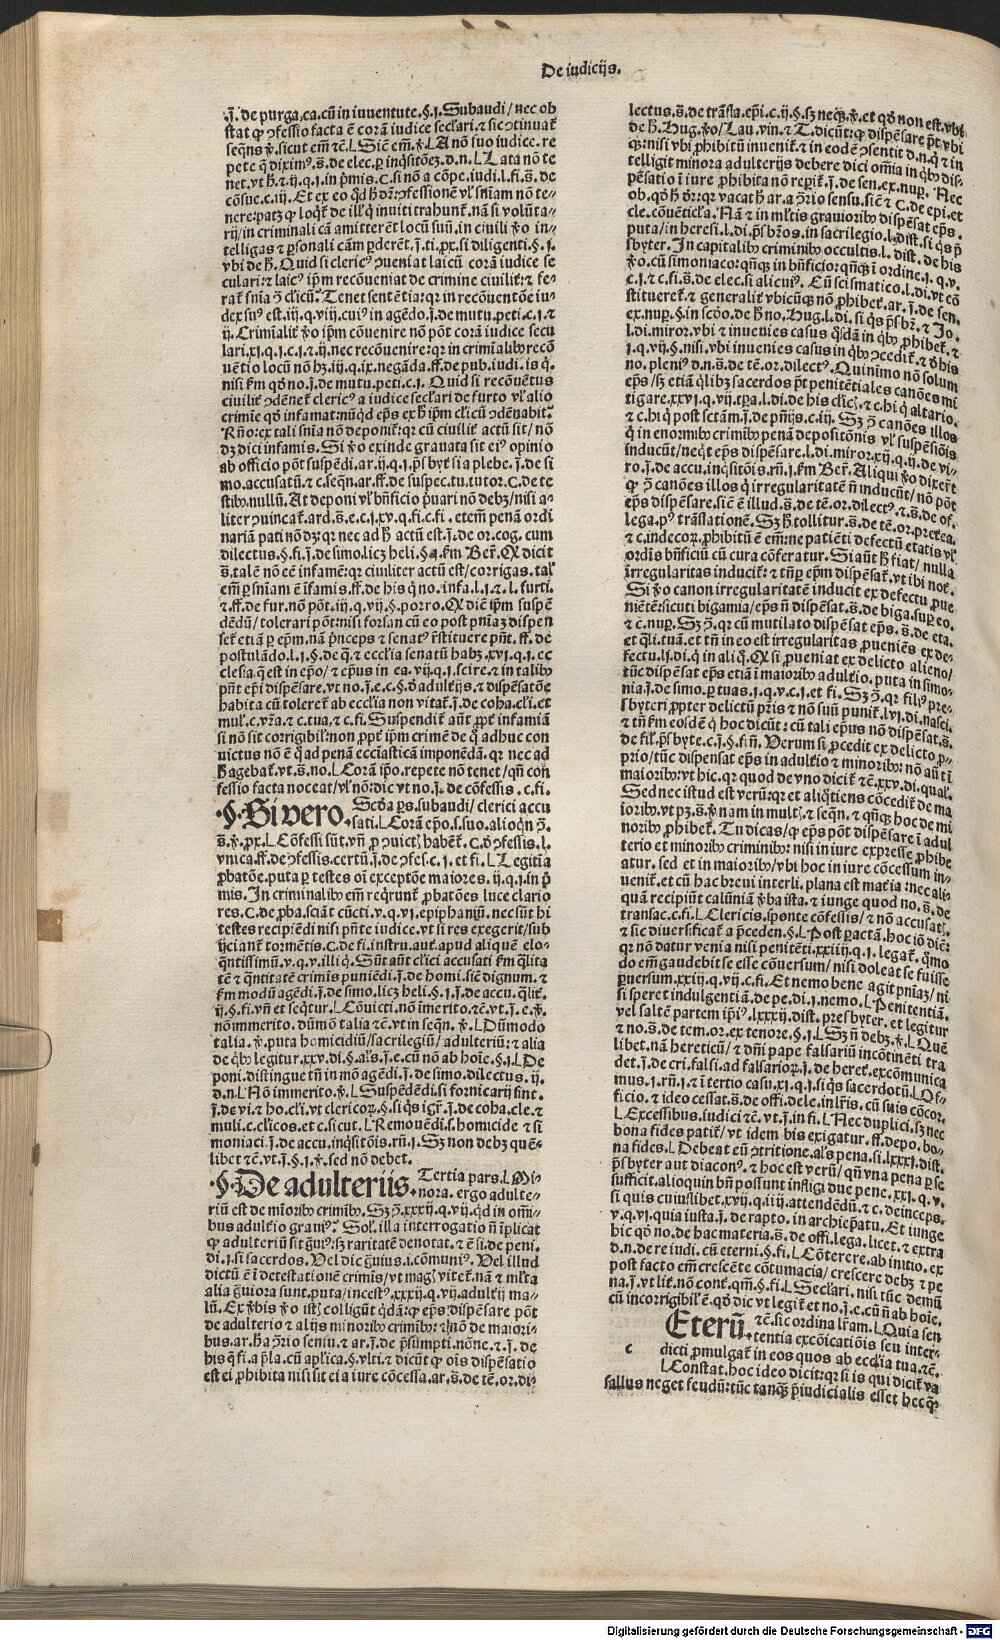 De iudicijs.
.j̄. de purga. ca. cū in iuuentute. §. j. Subaudi / nec ob
stat ꝙ ↄfessio facta ē corā iudice sec̄lari. ⁊ sic ↄtinuat̄
seq̄ns ꝟ. sicut em̄ ⁊c̄. L Siē em̄. ꝟ. L A nō suo iudice. re
pete q̄ diximꝰ. s̄. de elec. ꝑ inq̄sitōeꝫ. d. n. L Lata nō te
net. vt ħ. ⁊ .ij. q. j. in p̄mis. C. si nō a cōpe. iudi. l. fi. s̄. de
cōsue. c. iij. Et ex eo
nere: patꝫ ꝙ loq̄t̄ de ill̄ q̄ inuiti trahunt̄. nā si volūta⸗
rij / in criminali cā amitterēt locū suū. in ciuili ꝟo in⸗
telligas ⁊ ꝑsonali cām ꝑderēt. j̄. ti. ꝓx. si diligenti. §. j.
vbi de ħ. Quid si clericꝰ ↄueniat laicū corā iudice se
culari: ⁊ laicꝰ ip̄m recōueniat de crimine ciuilit̄: ⁊ fe⸗
rat̄ sn̄ia ↄ̄ cl̄icū: Tenet sentētia: qr in recōuentōe iu⸗
dex suꝰ est. iij. q. viij. cuiꝰ in agēdo. j̄. de mutu. peti. c. j. ⁊
ij. Crimīalit̄ ꝟo ip̄m cōuenire nō pōt corā iudice secu
lari. xj. q. j. c. j. ⁊ ij. nec recōuenire: qr in crimīalibꝰ recō
uētio locū nō hꝫ. iij. q. ix. negāda. ff. de pub. iudi. is q̄.
nisi k̄m qd̄ no. j̄. de mutu. peti. c. j. Quid si recōuētus
ciuilit̄ ↄdēnet̄ clericꝰ a iudice sec̄lari de furto vl̄ alio
crimīe qd̄ infamat: nūqd ep̄s ex ħ ip̄m cl̄icū ↄdēnabit:
Rn̄o: ex tali sn̄ia nō deponit̄: qr cū ciuilit̄ actū sit / nō
dꝫ dici infamis. Si ꝟo exinde grauata sit eiꝰ opinio
ab officio pōt suspēdi. ar. ij. q. j. p̄sbyt̄ si a plebe. j̄. de si
mo. accusatū. ⁊ c. seq̄n. ar. ff. de suspec. tu. tutor. C. de te
stibꝰ. nullū. At deponi vl̄ bn̄ficio p̄uari nō debꝫ / nisi a⸗
liter ↄuincat̄. ar d. s̄. e. c. j. xv. q. fi. c. fi. etem̄ penā ordi
nariā pati nō dꝫ: qr nec ad ħ actū est. j̄. de or. cog. cum
dilectus. §. fi. j̄. de simo. licꝫ heli. §. k̄m Ber̄. Qd̄ dicit
s̄. talē nō eē infamē: qr ciuiliter actū est / corrigas. tal̄
em̄ ꝑ sn̄iam ē īfamis. ff. de his q̄ no. infa. l. j. ⁊ l. furti.
⁊ ff. de fur. nō pōt. iij. q. vij. §. porro. Qd̄ diē ip̄m suspē
dēdū / tolerari pōt: nisi forsan cū eo post pn̄iaꝫ dispen
set̄ etiā ꝑ ep̄m. nā p̄nceps ⁊ senatꝰ r̄stituere pn̄t. ff. de
postulādo. l. j. §. de q̄. ⁊ eccl̄ia senatū habꝫ. xvj. q. j. ec
clesia. q̄ est in ep̄o / ⁊ ep̄us in ea. vij. q. j. scire. ⁊ in talibꝰ
pn̄t ep̄i dispēsare. vt no. j̄. e. c. §. d̄ adult̄ijs. ⁊ dispēsatōe
habita cū toleret̄ ab eccl̄ia non vitat̄. j̄. de coha. cl̄i. et
mul̄. c. vr̄a. ⁊ c. tua. ⁊ c. fi. Suspendit̄ aūt ꝓpt̄ infamiā
si nō sit corrigibil̄: non ꝓpt̄ ip̄m crimē de q̄ adhuc con
uictus nō ē q̄ ad penā eccīasticā imponēdā. qr nec ad
ħ agebat̄. vt. s̄. no. L Corā ip̄o. repete nō tenet / qn̄ con
fessio facta noceat / vl̄ nō: dic vt no. j̄. de cōfessis. c. fi.
§. Si vero. Scd̄a ꝑs. subaudi / clerici accu
sati. L Corā ep̄o. s. suo. alioqn̄ ↄ̄.
s̄. ꝟ. ꝓx. L Cōfessi sūt. vn̄ ꝓ ↄuict̄ habēt̄. C. d̄ ↄfessis. l.
vnica. ff. de ↄfessis. certū. j̄. de ↄfes. c. j. et fi. L Legitīa
ꝓbatōe. puta ꝑ testes oī exceptōe maiores. ij. q. j. in p̄
mis. In criminalibꝰ em̄ req̄runt̄ ꝓbatōes luce clario
res. C. de ꝓba. sciāt cūcti. v. q. vj. epiphaniū. nec sūt hi
testes recipiēdi nisi p̄nte iudice. vt si res exegerit / sub
ijciant̄ tormētis. C. de fi. instru. aut. apud aliquē elo⸗
q̄ntissimū. v. q. v. illi q̄. Sūt aūt cl̄ici accusati k̄m q̄lita
tē ⁊ q̄ntitatē crimīs puniēdi. j̄. de homi. siē dignum. ⁊
k̄m modū agēdi. j̄. de simo. licꝫ heli. §. j. j̄. de accu. q̄lit̄.
ij. §. fi. vn̄ et seq̄tur. L Cōuicti. nō īmerito. ⁊c̄. vt. j̄. e. ꝟ.
nō immerito. dūmō talia ⁊c̄. vt in seq̄n. ꝟ. L Dūmodo
talia. ꝟ. puta homicidiū / sacrilegiū / adulteriū: ⁊ alia
de q̄bꝰ legitur. xxv. di. §. al̄s. j̄. e. cū nō ab hoīe. §. j. L De
poni. distingue tn̄ in mō agēdi. j̄. de simo. dilectus. ij.
d. n. L Nō immerito. ꝟ. L Suspēdēdi. si fornicarij sint.
j̄. de vi. ⁊ ho. cl̄i. vt clericoꝝ. §. si q̄s igr̄. j̄. de coha. cle. ⁊
muli. c. cl̄icos. et c. sicut. L Remouēdi. s. homicide ⁊ si
moniaci. j̄. de accu. inq̄sitōis. rn̄. j. Sꝫ non debꝫ quē⸗
libet ⁊c̄. vt. j̄. §. j. ꝟ. sed nō debet.
§. De adulteriis. Tertia pars. L Mi⸗
nora. ergo adulte⸗
riū est de mīoribꝰ crimībꝰ. Sꝫ ↄ̄. xxxij. q. vij. qd̄ in om̄i⸗
bus adult̄io grauiꝰ: Sol̄. illa interrogatio n̄ īplicat
ꝙ adulteriū sit ḡuiꝰ: sꝫ raritatē denotat. ⁊ ē si. de peni.
di. j. si sacerdos. Vel dic ḡuius. i. cōmuniꝰ. Vel illud
dictū ē ī detestationē crimis / vt magꝭ vitet̄. nā ⁊ ml̄ta
alia ḡuiora sunt. puta / incestꝰ. xxxij. q. vij. adult̄ij ma⸗
lū. Ex ꝟbis ꝟo istꝭ colligūt q̄dā: ꝙ ep̄s dispēsare pōt
de adulterio ⁊ alijs minoribꝰ crimībꝰ: ⁊ nō de maiori⸗
bus. ar. ħ a ↄ̄rio sensu. ⁊ ar. j̄. de p̄sumpti. nōne. ⁊. j̄. de
his q̄ fi. a p̄la. cū aplica. §. vlti. ⁊ dicūt ꝙ oīs dispēsatio
est ei ꝓhibita nisi sit ei a iure cōcessa. ar. s̄. de tē. or. di⸗
lectus. s̄. de trāsla. ep̄i. c. ij. §. sꝫ neqꝫ. ꝟ. et qd̄ non est. vbi
de ħ. Hug. ꝟo / Lau. vin. ⁊ T. dicūt: ꝙ dispēsare p̄t vbi
qꝫ: nisi vbi ꝓhibitū inuenit̄. ⁊ in eodē ↄsentit d. n. q̄ ⁊ in
telligit minora adulterijs debere dici om̄ia in q̄bꝰ dis⸗
pēsatio ī iure ꝓhibita nō reꝑit̄. j̄. de sen. ex. nuꝑ. Nec
ob. qd̄ ħ dr̄: qr vacat ħ ar. a ↄ̄rio sensu. siē ⁊ C. de ep̄i. et
cle. cōuēticl̄a. Nā ⁊ in ml̄tis grauioribꝰ dispēsat ep̄s.
puta / in heresi. l. di. p̄sbr̄os. in sacrilegio. l. dist. si q̄s p̄
sbyter. In capitalibꝰ criminibꝰ occultis. l. dist. de his
ꝟo. cū simoniaco: qn̄qꝫ in bn̄ficio: qn̄qꝫ ī ordine. j. q. v.
c. j. ⁊ c. fi. s̄. de elec. si alicuiꝰ. Cū scismatico. l. di. vt cō
stitueret̄. ⁊ generalit̄ vbicūqꝫ nō ꝓhibet̄. ar. j̄. de sen.
ex. nuꝑ. §. in scd̄o. de ħ no. Hug. l. di. si q̄s p̄sbr̄. ⁊ Jo.
l. di. miror. vbi ⁊ inuenies casus q̄sdā in q̄bꝰ ꝓhibet̄. ⁊
j. q. vij. §. nisi. vbi inuenies casus in q̄bꝰ ↄcedit̄. ⁊ d̄ his
no. pleniꝰ d. n. s̄. de tē. or. dilectꝰ. Quinīmo nō solum
ep̄s / sꝫ etiā q̄libꝫ sacerdos p̄t penitētiales canōes mi
tigare. xxvj. q. vij. tp̄a. l. di. de his cl̄icꝭ. ⁊ c. hi q̄ altario.
⁊ c. hi q̄ post sctām. j̄. de pn̄ijs. c. iij. Sꝫ ↄ̄ canōes illos
q̄ in enormibꝰ crimībꝰ penā depositōnis vl̄ suspēsiōis
inducūt / neq̄t ep̄s dispēsare. l. di. miror. xij. q. ij. de vi⸗
ro. j̄. de accu. inq̄sitōis. rn̄. j. k̄m Ber̄. Aliqui ꝟo dixer̄t
ꝙ ↄ̄ canōes illos q̄ irregularitatē n̄ inducūt / nō pōt
ep̄s dispēsare. siē ē illud. s̄. de tē. or. dilectꝰ. ⁊ s̄. de of.
lega. pꝰ trāslationē. Sꝫ ħ tollitur. s̄. de tē. or. preterea.
⁊ c. indecoꝝ. ꝓhibitū ē em̄: ne patiēti defectū etatis vl̄
ordīs bn̄ficiū cū cura cōferatur. Si aūt ħ fiat / nulla
irregularitas inducit̄: ⁊ tn̄ ꝑ ep̄m dispēsat̄. vt ibi not̄.
Si ꝟo canon irregularitatē inducit ex defectu ꝓue
niētē: sicuti bigamia / ep̄s n̄ dispēsat. s̄. de biga. suꝑ eo.
⁊ c. nuꝑ. Sꝫ ↄ̄. qr cū mutilato dispēsat ep̄s. s̄. de eta.
et q̄li. tuā. et tn̄ in eo est irregularitas ꝓueniēs ex de⸗
fectu. lj. di. q̄ in ali q̄. Qd̄ si ꝓueniat ex delicto alieno /
tūc dispēsat ep̄s etiā ī maioribꝰ adult̄io. puta in simo⸗
nia. j̄. de simo. ꝑ tuas. j. q. v. c. j. et fi. Sꝫ ↄ̄. qr filiꝰ pre⸗
sbyteri ꝓpter delictū pr̄is ⁊ nō suū punit̄. lvj. di. nasci.
⁊ tn̄ k̄m eosdē q̄ hoc dicūt: cū tali ep̄us nō dispēsat. s̄.
de fil̄. p̄sbyte. c. j. §. fin̄. Verum si ꝓcedit ex delicto ꝓ⸗
prio / tūc dispensat ep̄s in adult̄io ⁊ minoribꝰ: nō aūt ī
maioribꝰ: vt hic. qr quod de vno dicit̄ ⁊c̄. xxv. di. qual̄.
Sed nec istud est verū: qr et aliq̄tiens cōcedit̄ de ma
ioribꝰ. vt pꝫ. s̄. ꝟ. nam in multꝭ. ⁊ seq̄n. ⁊ qn̄qꝫ hoc de mi
noribꝰ ꝓhibet̄. Tu dicas / ꝙ ep̄s pōt dispēsare ī adul
terio et minoribꝰ criminibꝰ: nisi in iure expresse ꝓhibe
atur. sed et in maioribꝰ / vbi hoc in iure cōcessum in⸗
uenit̄. et cū hac breui interli. plana est mat̄ia: nec ali⸗
quā recipiūt calūniā ꝟba ista. ⁊ iunge quod no. s̄. de
transac. c. fi. L Clericis. sponte cōfessis / ⁊ nō accusatꝭ.
⁊ sic diuersificat̄ a p̄ceden. §. L Post ꝑactā. hoc iō diē:
qr nō datur venia nisi penitēti. xxiiij. q. j. legat̄. q̄mo
do em̄ gaudebit se esse cōuersum / nisi doleat se fuisse
ꝑuersum. xxiij. q. vij. c. fi. Et nemo bene agit pn̄iaꝫ / ni
si speret indulgentiā. de pe. di. j. nemo. L Penitentiā.
vel saltē partem ip̄iꝰ. lxxxij. dist. presbyter. et legitur
⁊ no. s̄. de tem. or. ex tenore. §. j. L Sꝫ n̄ debꝫ. ꝟ. L Quē
libet. nā hereticū / ⁊ dn̄i pape falsariū incōtinēti tra
det. j̄. de cri. falsi. ad falsarioꝝ. j̄. de heret. excōmunica
mus. j. rn̄. j. ⁊ ī tertio casu. xj. q. j. si q̄s sacerdotū. L Of⸗
ficio. ⁊ ideo cessat. s̄. de offi. dele. in lr̄is. cū suis cōcor.
L Excessibus. iudici ⁊c̄. vt. j̄. in fi. L Nec duplici. sꝫ nec
bona fides patit̄ / vt idem bis exigatur. ff. depo. bo⸗
na fides. L Debeat eū ↄtritione. al̄s pena. si. lxxxj. dist.
p̄sbyter aut diaconꝰ. ⁊ hoc est verū / qn̄ vna pena ꝑ se
sufficit. alioquin bn̄ possunt infligi due pene. xxj. q. v.
si quis cuiuslibet. xvij. q. iiij. attendēdū. ⁊ c. deinceps.
v. q. vj. quia iusta. j̄. de rapto. in archiep̄atu. Et iunge
hic qd̄ no. de hac materia. s̄. de offi. lega. licet. ⁊ extra
d. n. de re iudi. cū eterni. §. fi. L Cōterere. ab initio. ex
post facto em̄ crescēte cōtumacia / crescere debꝫ ⁊ pe
na. j̄. vt lit̄. nō cont̄. qm̄. §. fi. L Sec̄lari. nisi tūc demū
cū incorrigibil̄ ē. qd̄ dic vt legit̄ et no. j̄. e. cū n̄ ab hoīe.
Eterū. ⁊c̄. sic ordina lr̄am. L Quia sen
tentia excōicatiōis seu inter⸗
c dicti ꝓmulgat̄ in eos quos ab eccl̄ia tua. ⁊c̄.
L Constat. hoc ideo dicit: qr si is qui dicit̄ va
sallus neget feudū: tūc tanqꝫ p̄iudicialis esset hec q̄⸗
Digitalisierung gefördert durch die Deutsche Forschungsgemeinschaft - DFG